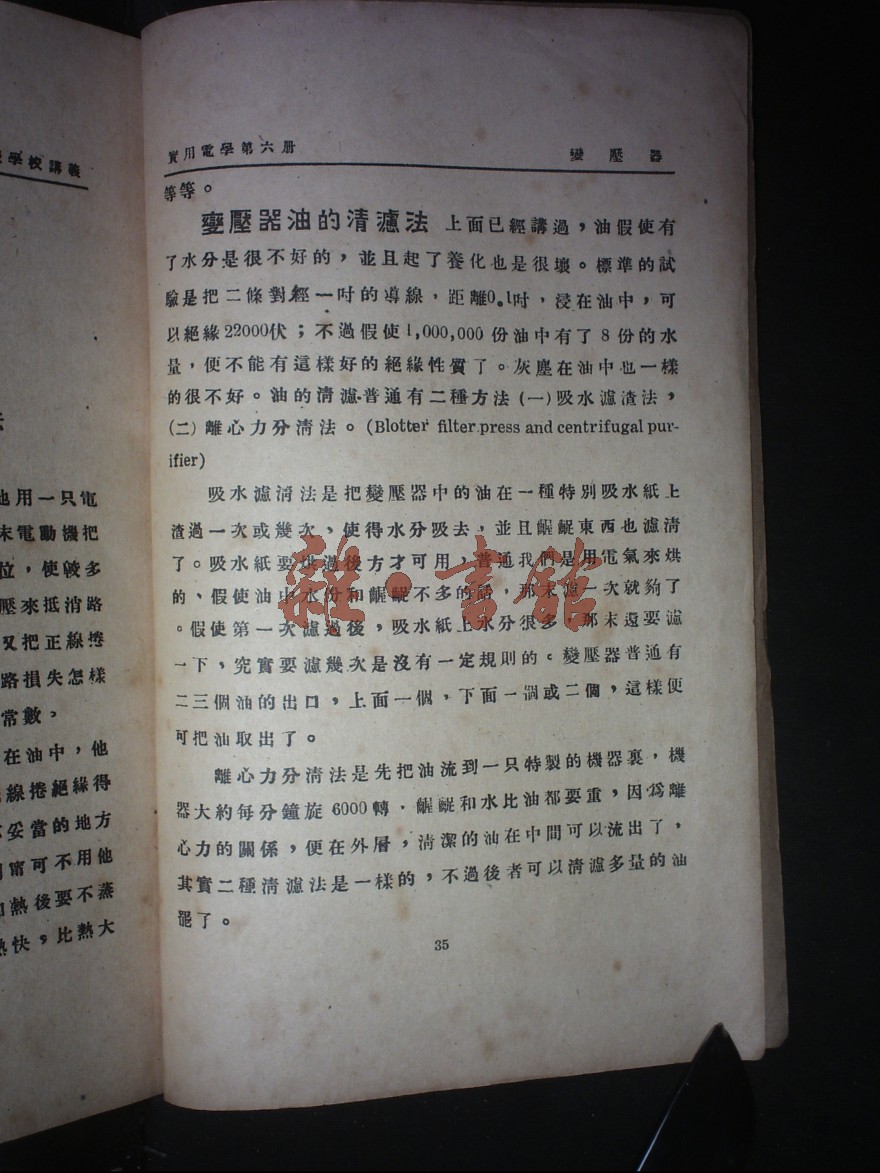 學校講義
地用一只電
末電動機把
位，使彼多
壓來抵消路
又把正線捲
路損失怎樣
常數。
在油中，他
線捲絕緣得
妥當的地方
甯可不用他
加熱後要不蒸
熱快，比熱大
實用電學第六册 變壓器
等等。
變壓器油的清濾法 上面已經講過，油假使有
了水分是很不好的，並且起了養化也是很壞。標準的試
驗是把二條對徑一吋的導線，距離0.1吋，浸在油中，可
以絕緣22000伏；不過假使1,000,000份油中有了8份的水
量，便不能有這樣好的絕緣性質了。灰塵在油中也一樣
的很不好。油的清濾普通有二種方法(一)吸水濾渣法，
(二)離心力分清法。(Blotter filter press and centrifugal pur-
ifier)
吸水濾清法是把變壓器中的油在一種特別吸水紙上
渣過一次或幾次、使得水分吸去，並且齷齪東西也濾清
了。吸水紙要烘過後方才可用，普通我們是用電氣來烘
的、假使油中水份和齷齪不多的話，那末濾一次就夠了
。假使第一次濾過後，吸水紙上水分很多，那末還要濾
一下，究實要濾幾次是沒有一定規則的。變壓器普通有
二三個油的出口，上面一個，下面一個或二個，這樣便
可把油取出了。
離心力分清法是先把油流到一只特製的機器裏，機
器大約每分鐘旋6000轉．齷齪和水比油都要重，因爲離
心力的關係，便在外層，清潔的油在中間可以流出了，
其實二種清濾法是一樣的，不過後者可以清濾多量的油
罷了。
35
雜·書館